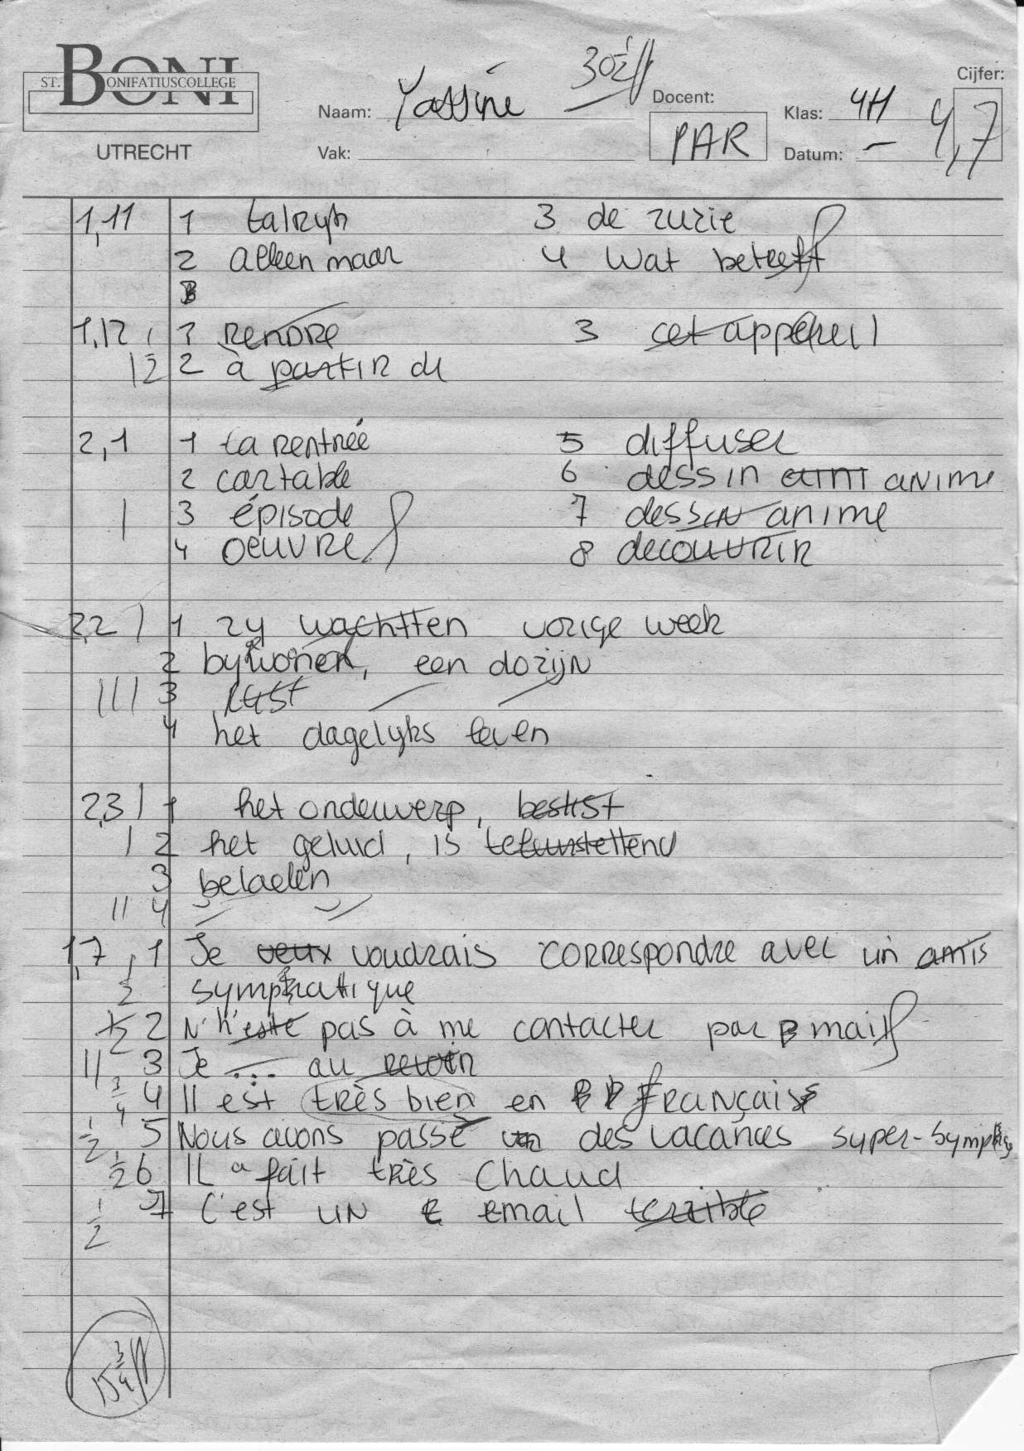 ST. BONIFATIUSCOLLEGE
BONI
UTRECHT
Naam: Yassine
30½
Docent: PAR
Klas: 4H
Cijfer: 4,7
Vak:
Datum: –
1,11 1 talryh 3 de ruzie
2 alleen maar 4 wat betreft
3
1,12 1 Rendre 3 cet appereil
½ 2 à partir de
2,1 1 la rentrée 5 diffuser
2 cartable 6 dessin anim anime
| 3 épisode 7 dessin anime
4 oeuvre 8 decouvrir
2,2 | 1 zy wachtten vorige week
2 bywonen, een dozijn
||| 3 rust
4 het dagelyks leven
2,3 | 1 het onderwerp, beslist
| 2 het geluid, is teleurstellend
3 beladen
|| 4
1,7 1 Je veux voudrais correspondre avec un amis
½ sympatique
½ 2 N'h'este pas à me contacter par mail
|| 3 Je ... au retour
¾ 4 Il est très bien en français
½ 5 Nous avons passé des vacances super-symp
½ 6 IL a fait très chaud
½ 7 C'est un email terrible
15¾